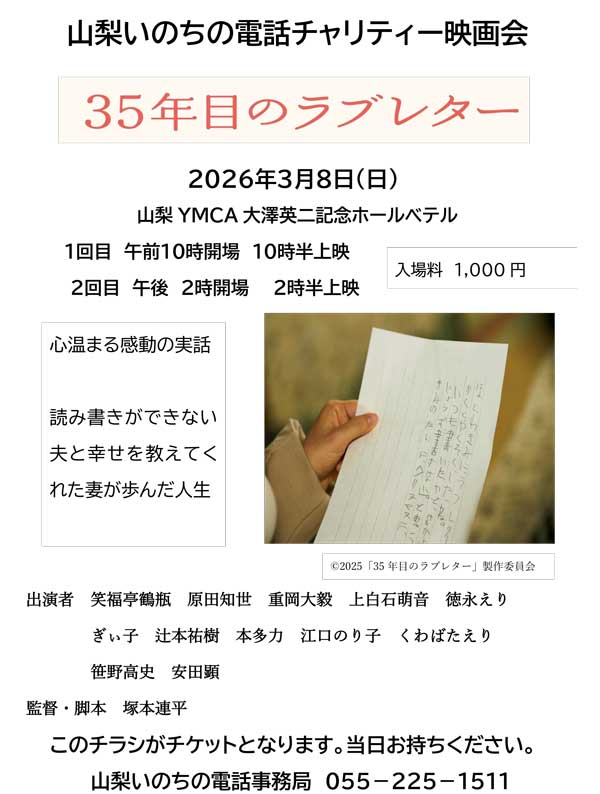 山梨いのちの電話チャリティー映画会
35年目のラブレター
2026年3月8日(日)
山梨YMCA大澤英二記念ホールベテル
1回目 午前10時開場 10時半上映
2回目 午後 2時開場 2時半上映
入場料 1,000円
心温まる感動の実話
読み書きができない
夫と幸せを教えてく
れた妻が歩んだ人生
©2025「35年目のラブレター」製作委員会
出演者 笑福亭鶴瓶 原田知世 重岡大毅 上白石萌音 徳永えり
ぎぃ子 辻本祐樹 本多力 江口のり子 くわばたえり
笹野高史 安田顕
監督・脚本 塚本連平
このチラシがチケットとなります。当日お持ちください。
山梨いのちの電話事務局 055-225-1511